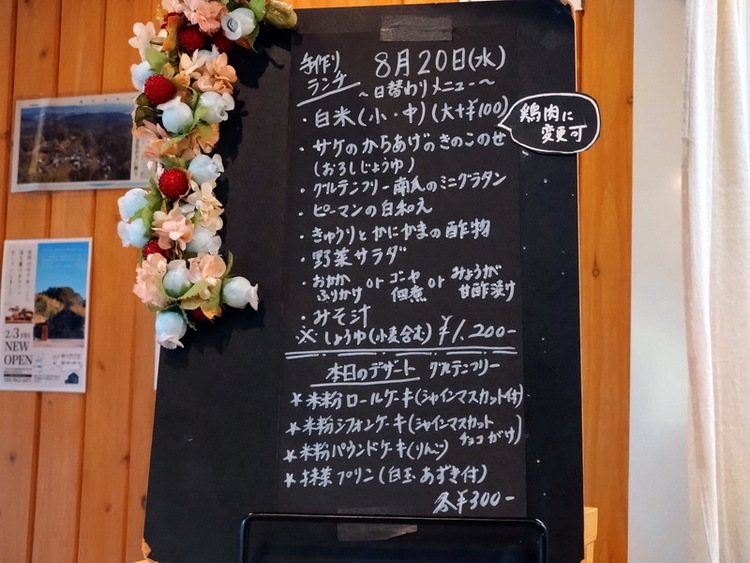 手作り
ランチ
8月20日(水)
〜日替わりメニュー〜
・白米(小・中)(大+¥100)
鶏肉に
変更可
・サケのからあげのきのこのせ
(おろしじょうゆ)
・グルテンフリー南瓜のミニグラタン
・ピーマンの白和え
・きゅうりとかにかまの酢物
・野菜サラダ
・おかか ふりかけ or ゴーヤ 佃煮 or みょうが 甘酢漬け
・みそ汁
※しょうゆ(小麦含む) ¥1,200-
本日のデザート グルテンフリー
☆米粉ロールケーキ(シャインマスカット付)
☆米粉シフォンケーキ(シャインマスカット
チョコがけ)
☆米粉パウンドケーキ(りんご)
☆抹茶プリン(白玉あずき付)
各¥300-
2.3 FRI
NEW
OPEN